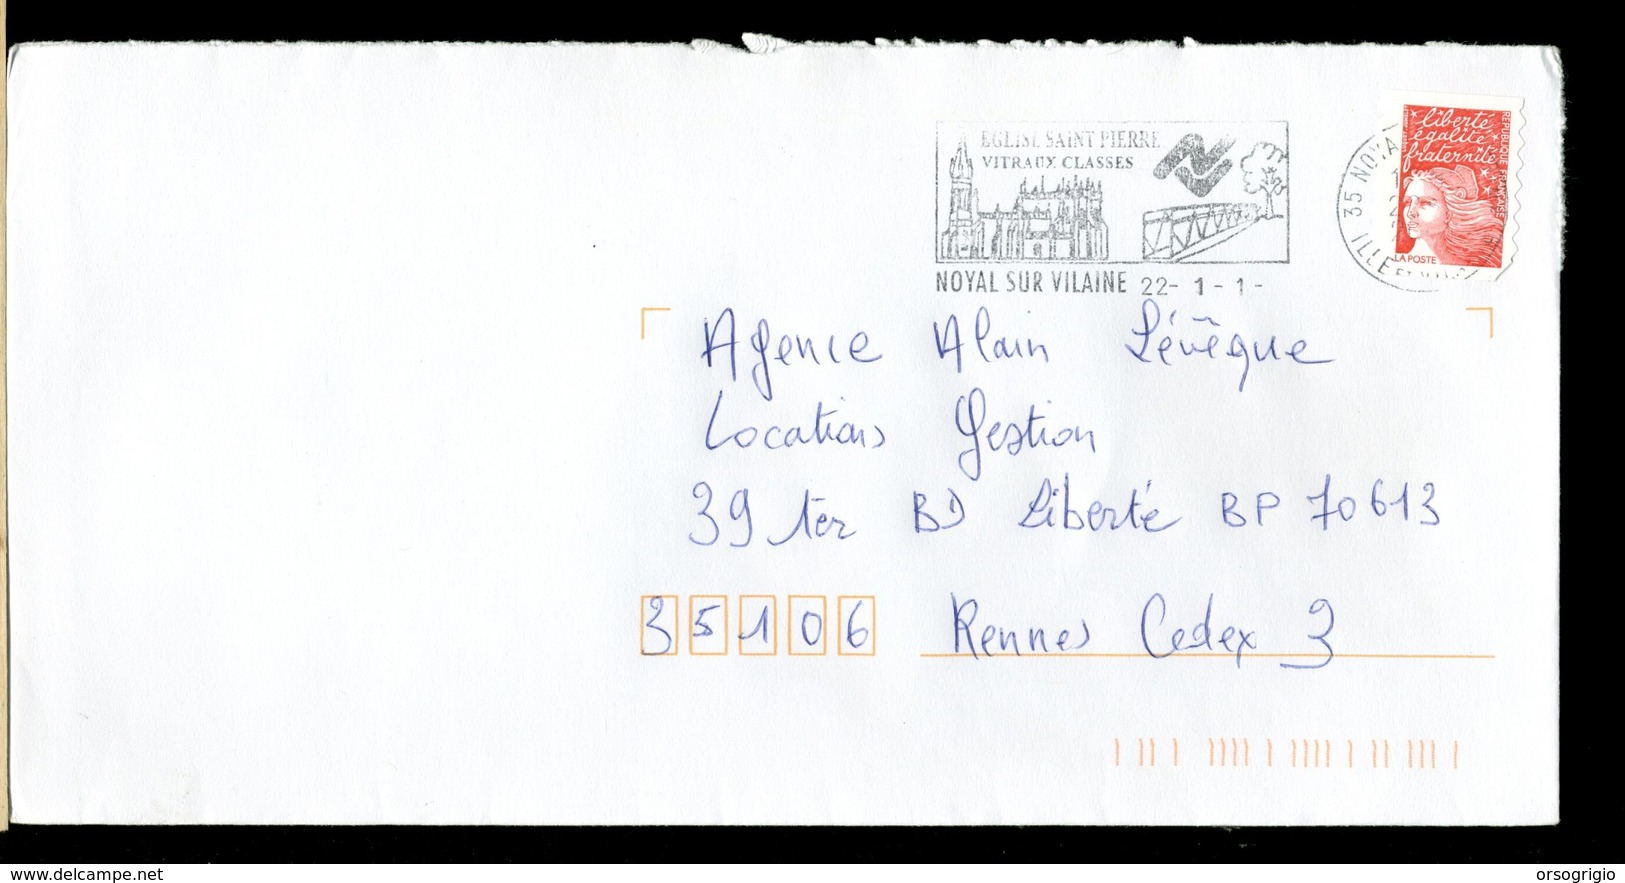 EGLISE SAINT PIERRE
VITRAUX CLASSES
NOYAL SUR VILAINE 22- 1 - 1 -
35 NOYA
ILLE ET
liberté
égalité
fraternité
REPUBLIQUE FRANÇAISE
LA POSTE
Agence Alain Lévêque
Locations Gestion
39 ter BD Liberté BP 70613
35106 Rennes Cedex 3
delcampe.net
orsogrigio